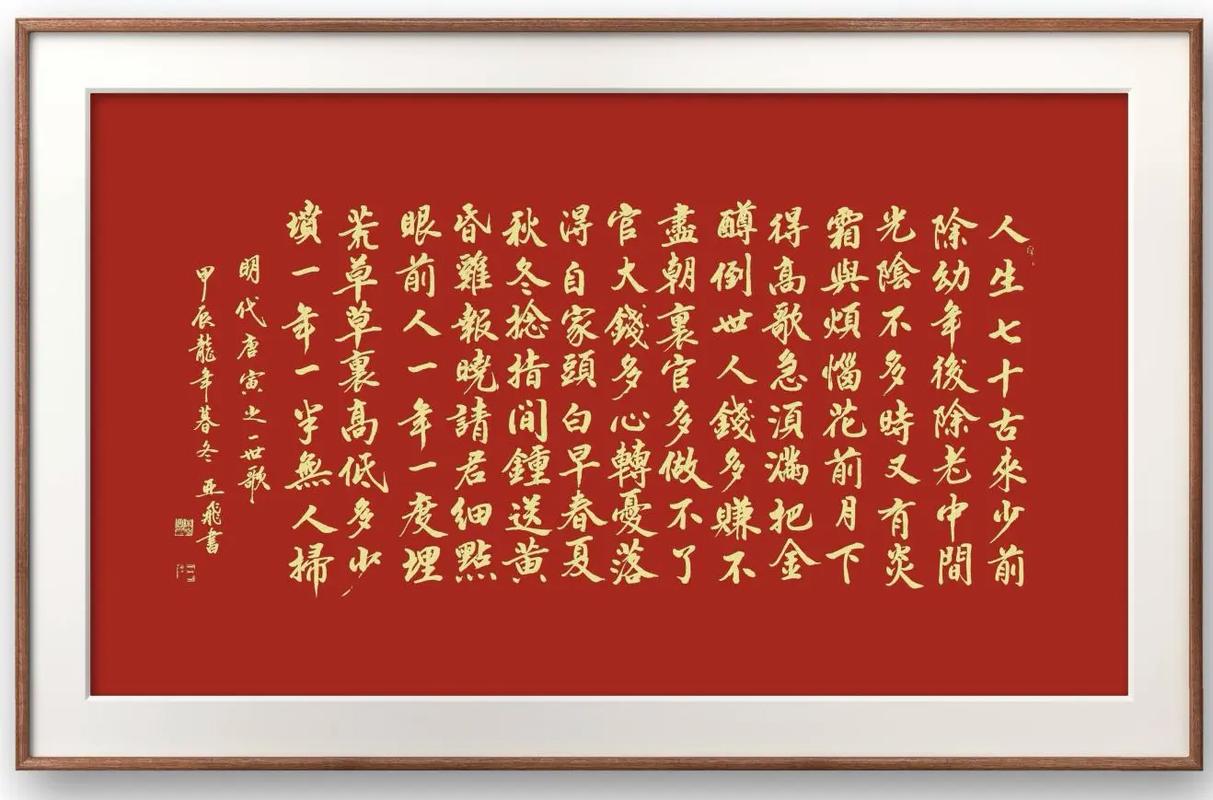 人生七十古來少前
除幼年後除老中間
光陰不多時又有炎
霜與煩惱花前月下
得高歌急須滿把金
罇倒世人錢多賺不
盡朝裏官多做不了
官大錢多心轉憂落
得自家頭白早春夏
秋冬捻指間鍾送黃
昏雞報曉請君細點
眼前人一年一度埋
荒草草裏高低多少
墳一年一半無人掃
明代唐寅之一世歌
甲辰龍年暮冬 亚飛書